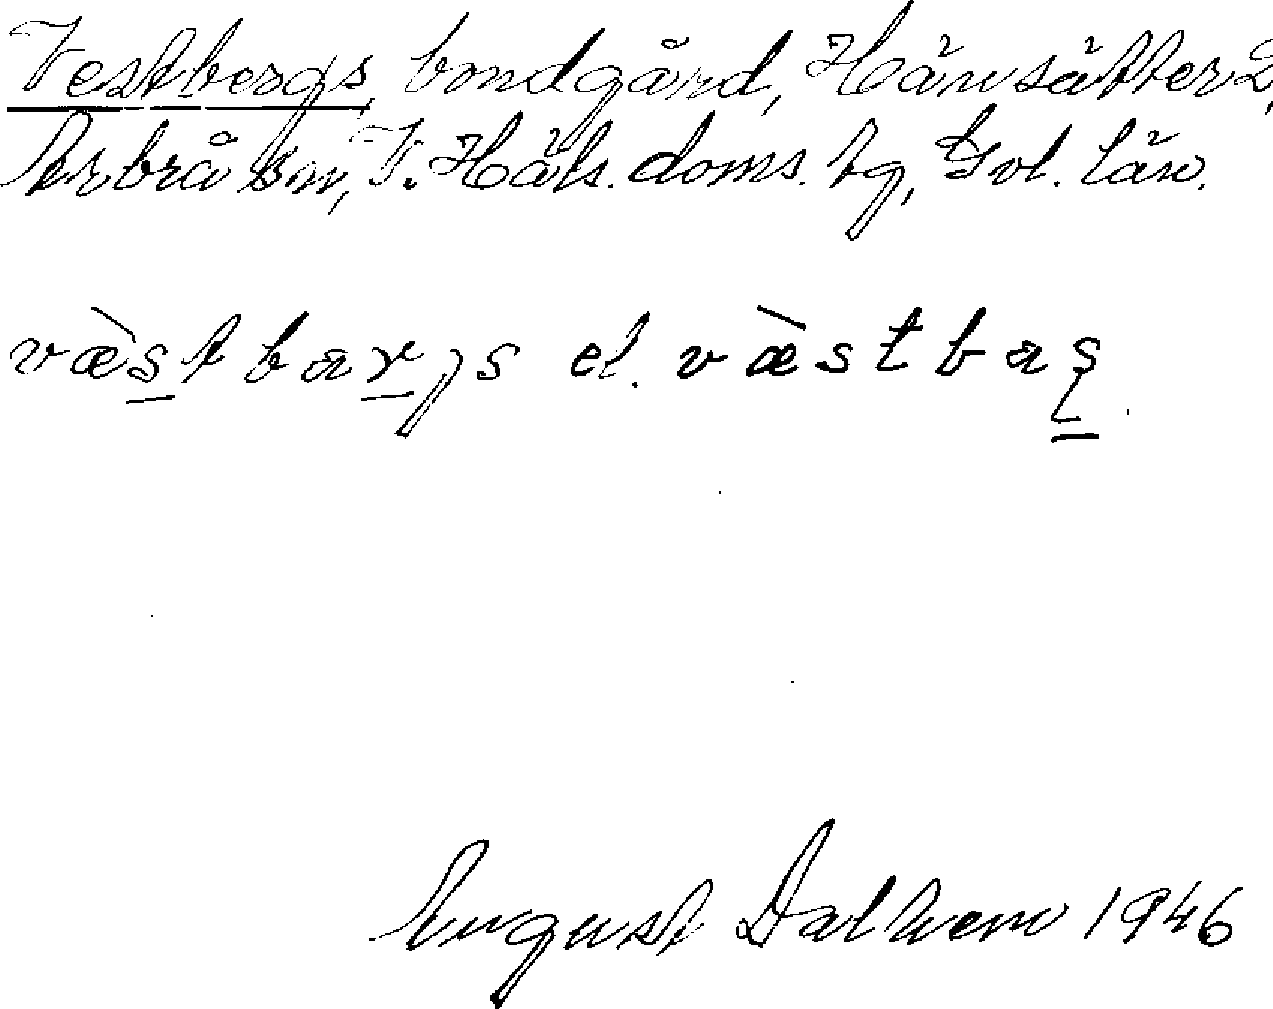 Vestbergs, bondgård, Hänsätter 2,
Arbrå sn, V. Häls. doms. tg, Gvl. län.
væ̀stbarjs el. væ̀stbaʂ.
August Dalhem 1946